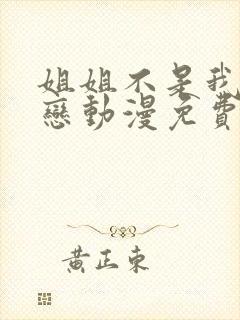 姐姐不是我
戀動漫免費
黃正東